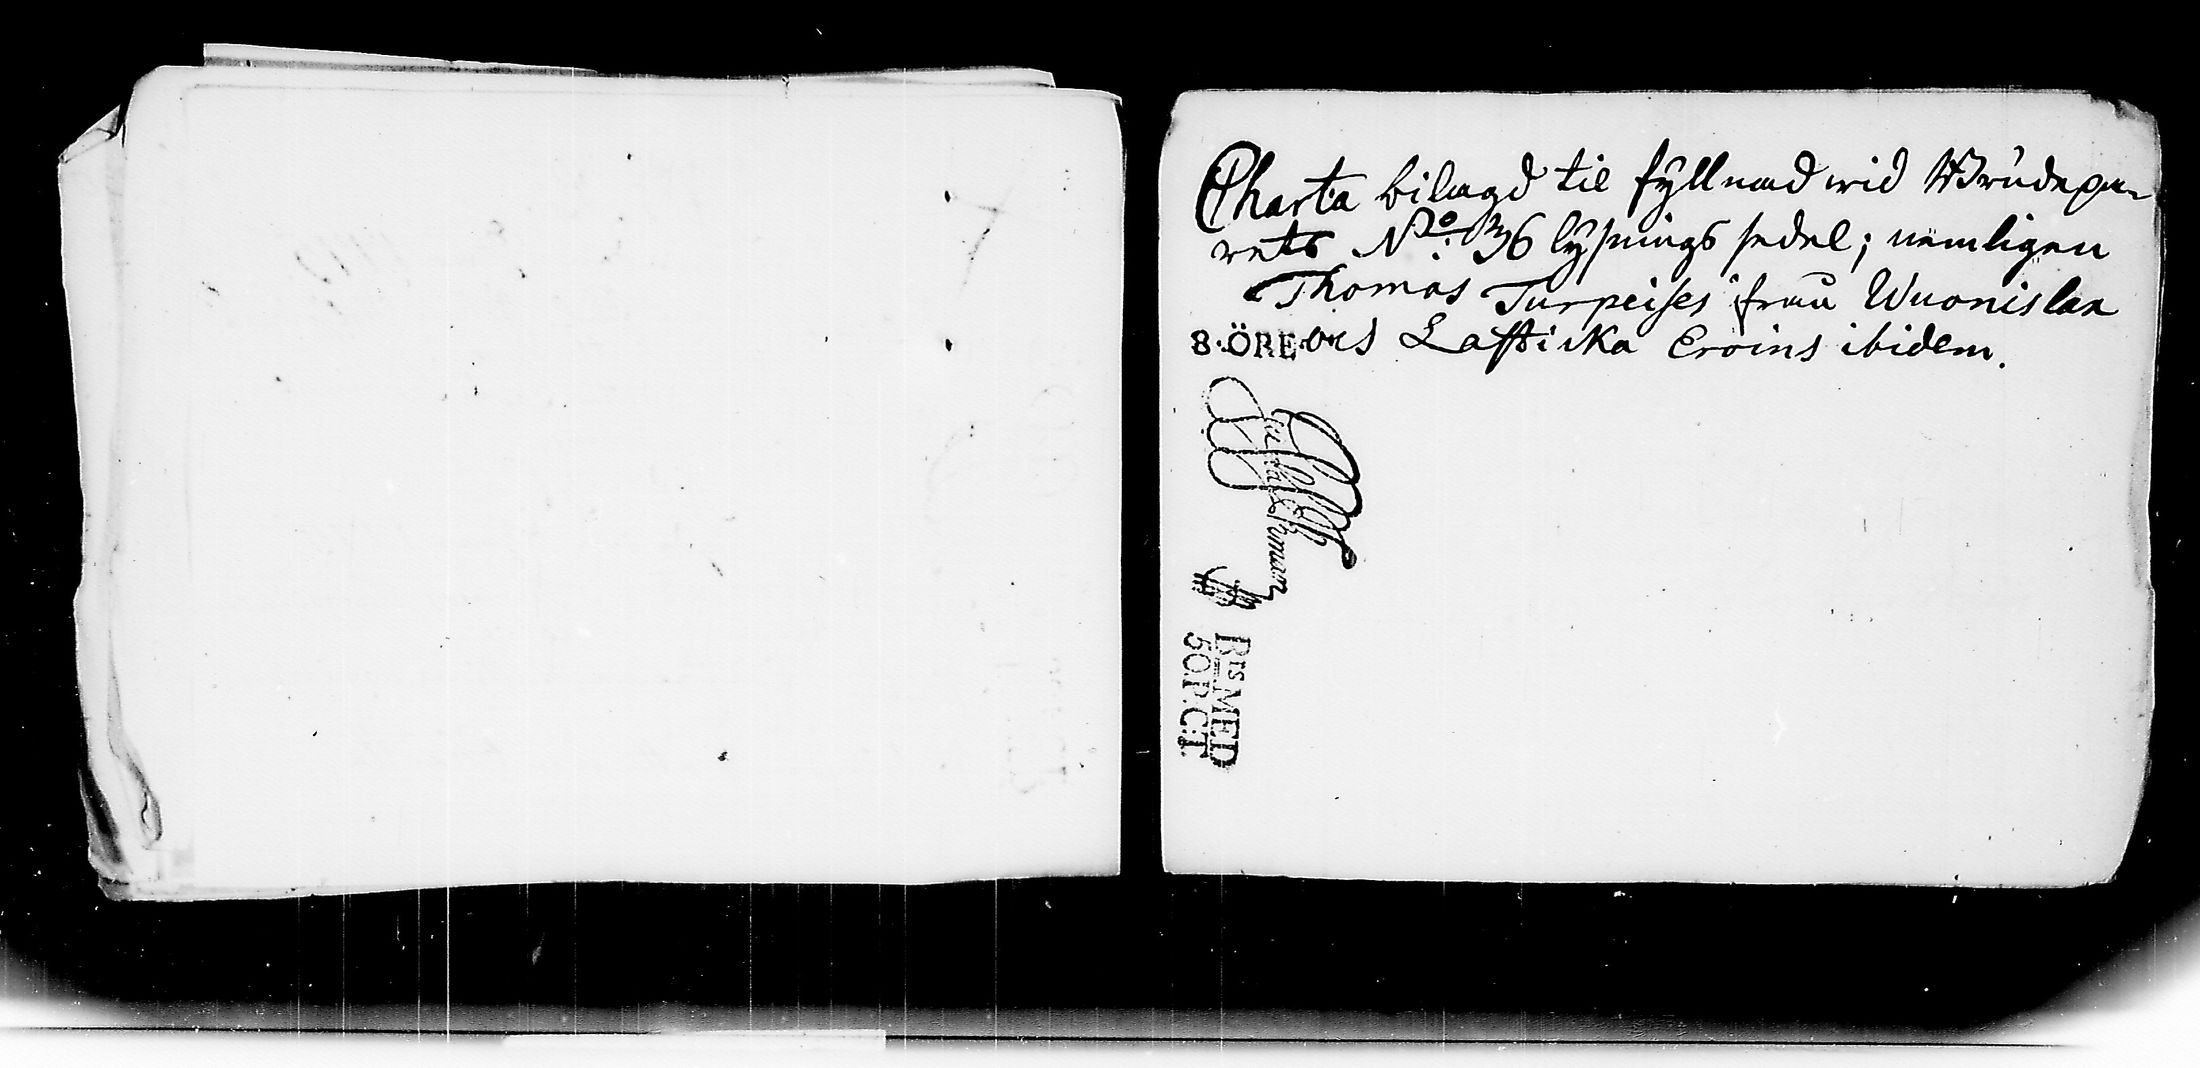 Charta bilagd til fyllnad wid Brúdepa-
rets No: 36 lysnings sedel; nemligen
Thomas Turpeises fråu Wuonislax
8·ÖRE ocs Lasticka Eroins ibidem.
RTS MED
50.P.C:T